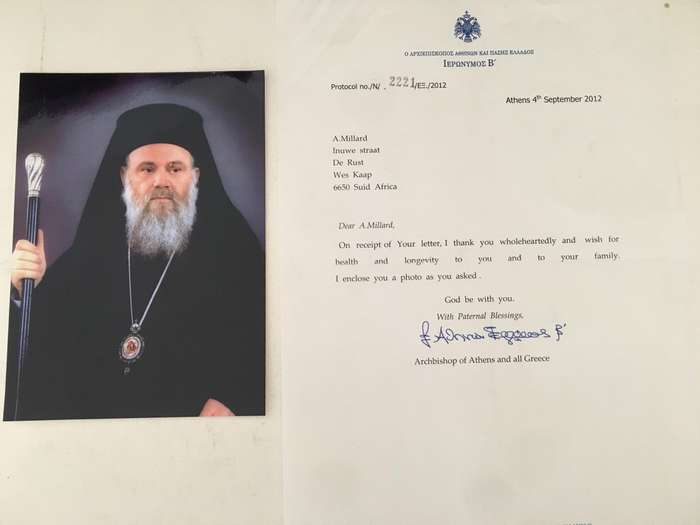 Ο ΑΡΧΙΕΠΙΣΚΟΠΟΣ ΑΘΗΝΩΝ ΚΑΙ ΠΑΣΗΣ ΕΛΛΑΔΟΣ
ΙΕΡΩΝΥΜΟΣ Β΄
Protocol no./N/ . 2221/ΕΞ./2012
Athens 4th September 2012
A.Millard
Inuwe straat
De Rust
Wes Kaap
6650 Suid Africa
Dear A.Millard,
On receipt of Your letter, I thank you wholeheartedly and wish for
health and longevity to you and to your family.
I enclose you a photo as you asked .
God be with you.
With Paternal Blessings,
Archbishop of Athens and all Greece